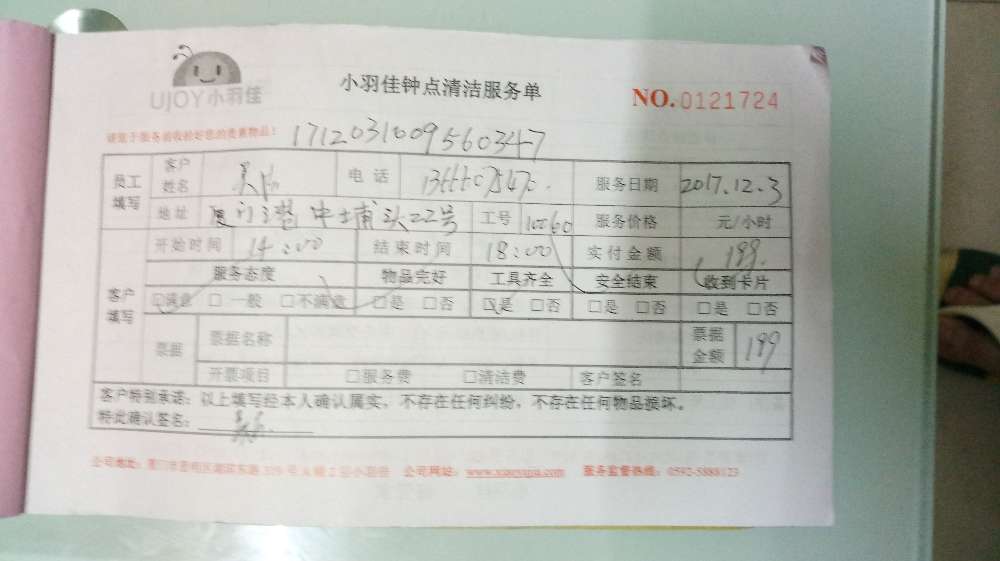 UJOY小羽佳
小羽佳钟点清洁服务单
NO.0121724
请您于服务前收拾好您的贵重物品！
171203100956034​7
员工填写 客户姓名 电话 服务日期 2017.12.3
地址 中埔头22号 工号 10060 服务价格 元/小时
客户填写 开始时间 14:00 结束时间 18:00 实付金额 199.
服务态度 物品完好 工具齐全 安全结束 收到卡片
□满意 □一般 □不满意 □是 □否 □是 □否 □是 □否 □是 □否
票据 票据名称 票据金额 199
开票项目 □服务费 □清洁费 客户签名
客户特别承诺：以上填写经本人确认属实，不存在任何纠纷，不存在任何物品损坏。
特此确认签名：
公司地址： 公司网站：www.xiaoyujia.com 服务监督热线：0592-5888123